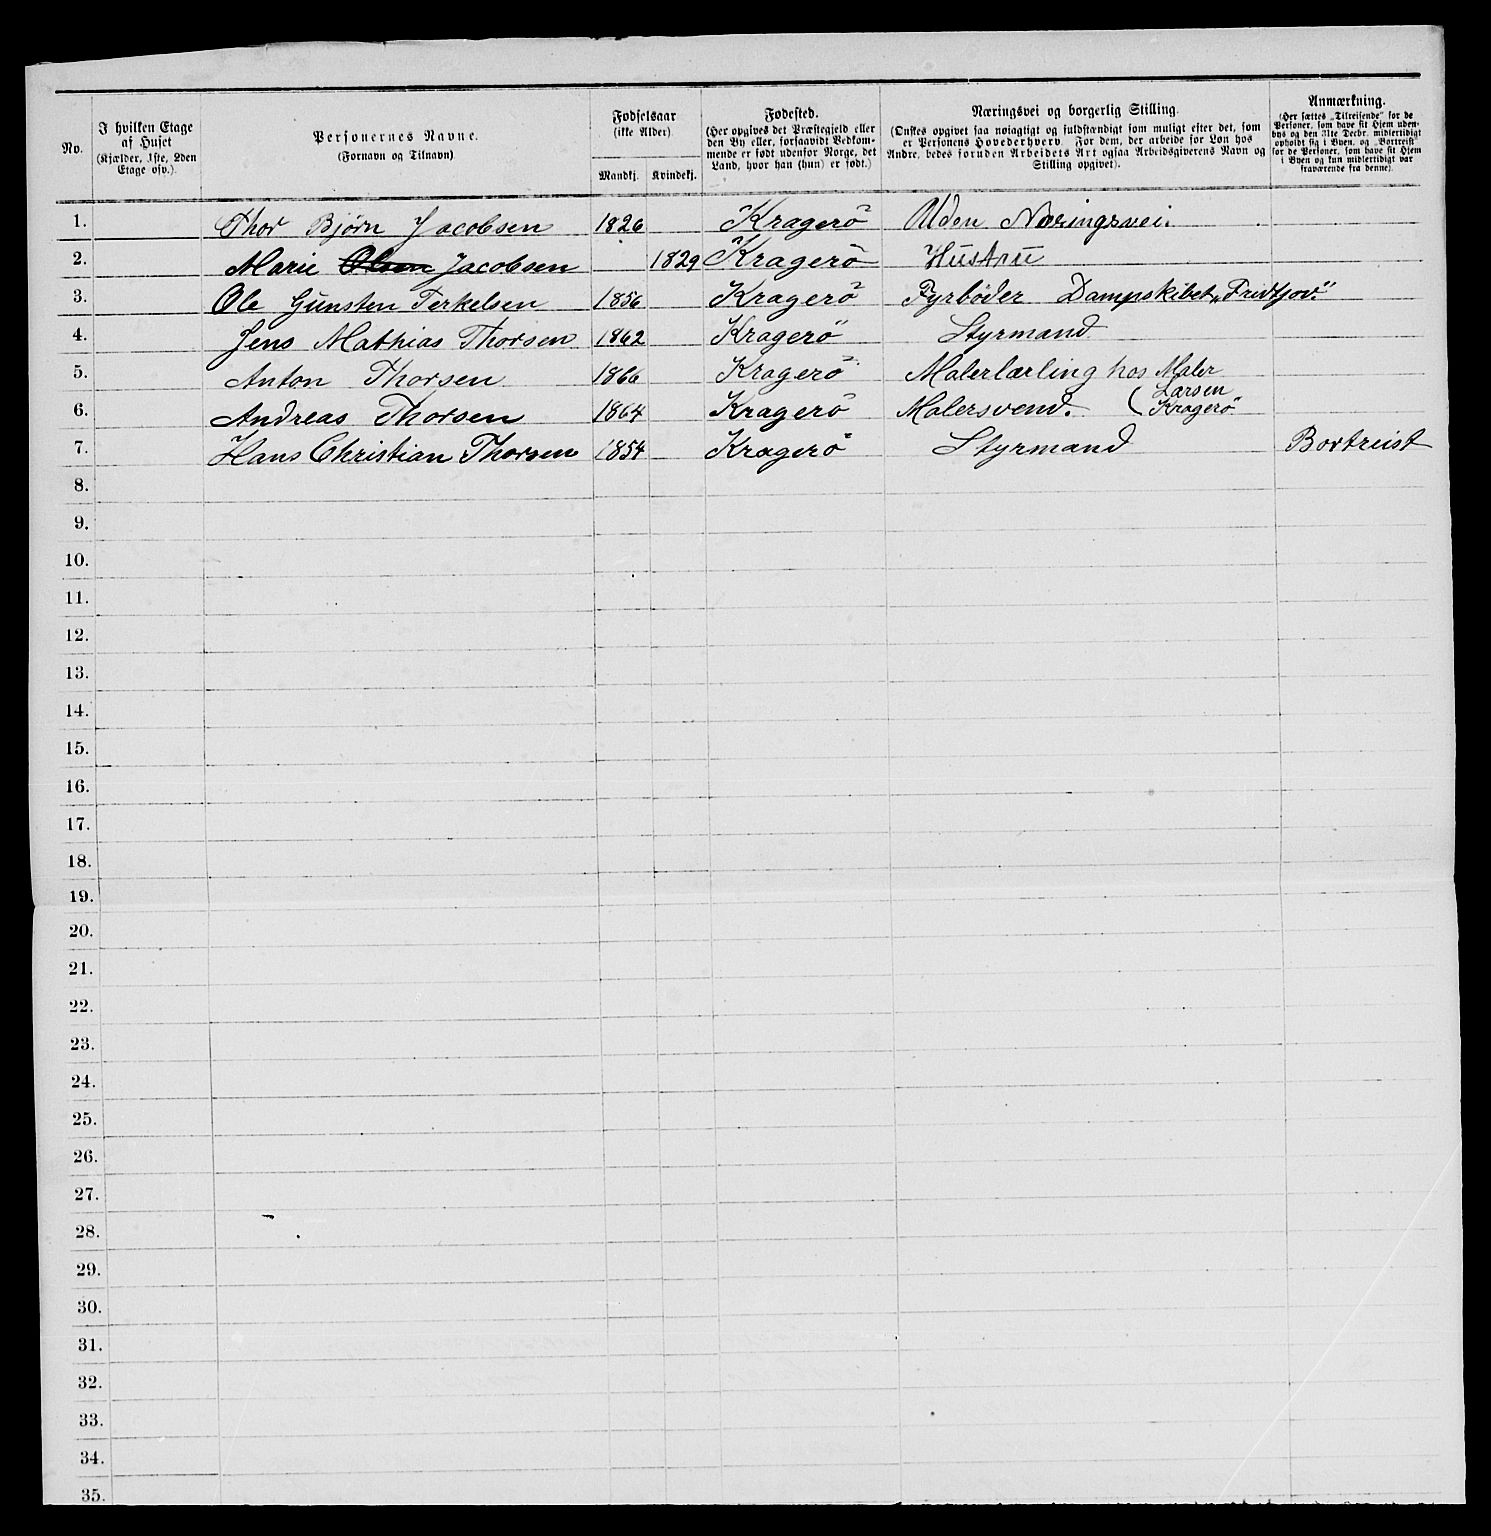 No.
I hvilken Etage
af Huset
(Kjælder, 1ste, 2den
Etage osv.)
Personernes Navne.
(Fornavn og Tilnavn)
Fødselsaar
(ikke Alder)
Mandkj. Kvindekj.
Fødested.
(Her opgives det Præstegjeld eller
den By eller, forsaavidt Vedkom-
mende er født udenfor Norge, det
Land, hvor han (hun) er født.)
Næringsvei og borgerlig Stilling.
(Ønskes opgivet saa nøiagtigt og fuldstændigt som muligt efter det, som
er Personens Hovederhverv. For dem, der arbeide for Løn hos
Andre, bedes foruden Arbeidets Art ogsaa Arbeidsgiverens Navn og
Stilling opgivet).
Anmærkning.
(Her sættes „Tilreisende“ for de
Personer, som have sit Hjem uden-
bys og den 31te Decbr. midlertidigt
opholdt sig i Byen, og „Bortreist“
for de Personer, som have sit Hjem
i Byen og kun midlertidigt var
fraværende fra denne).
1. Thor Bjørn Jacobsen 1826 Kragerö Uden Næringsvei.
2. Marie Olsen Jacobsen 1829 Kragerö Hustru
3. Ole Gunsten Terkelsen 1856 Kragerö Fyrböder Dampskibet „Fridtjov.“
4. Jens Mathias Thorsen 1862 Kragerö Styrmand
5. Anton Thorsen 1866 Kragerö Malerlærling hos Maler
Larsen
6. Andreas Thorsen 1864 Kragerö Malersvend. (Kragerö
7. Hans Christian Thorsen 1854 Kragerö Styrmand Bortreist
8.
9.
10.
11.
12.
13.
14.
15.
16.
17.
18.
19.
20.
21.
22.
23.
24.
25.
26.
27.
28.
29.
30.
31.
32.
33.
34.
35.